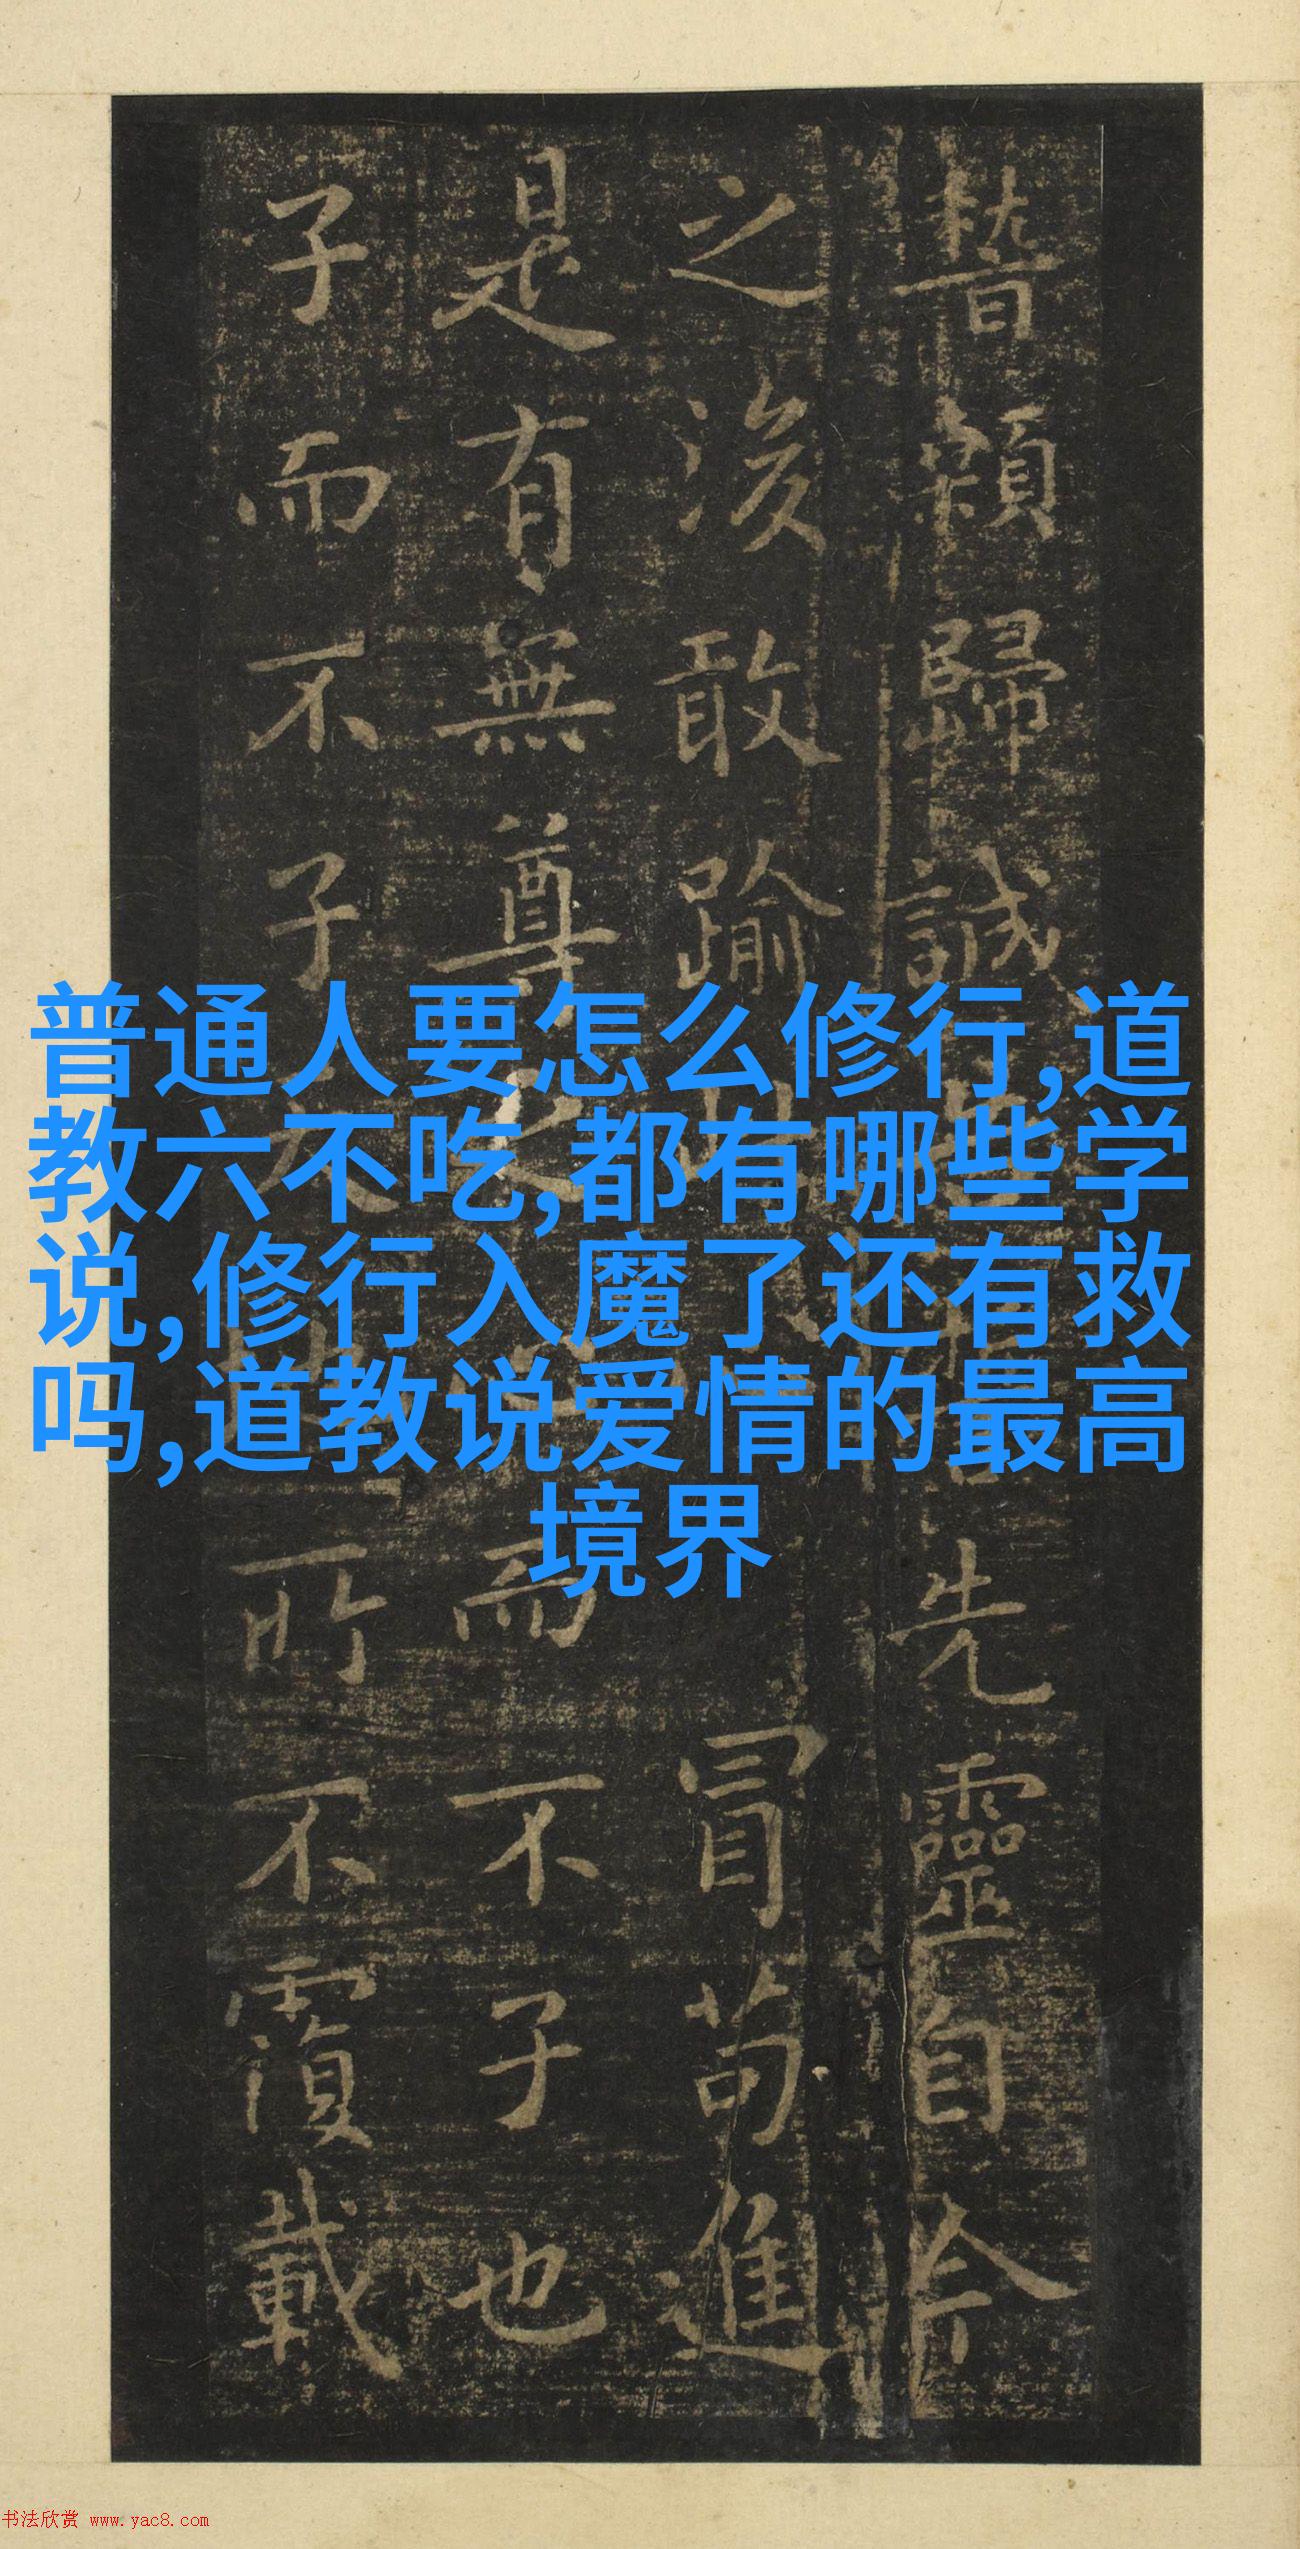 顙歸誠先靈自今
之後敢踰冒苟進
是有無尊之而不子也
子而不子所不覆載
普通人要怎么修行,道
教六不吃,都有哪些学
说,修行入魔了还有救
吗,道教说爱情的最高
境界
书法欣赏 www.yac8.com